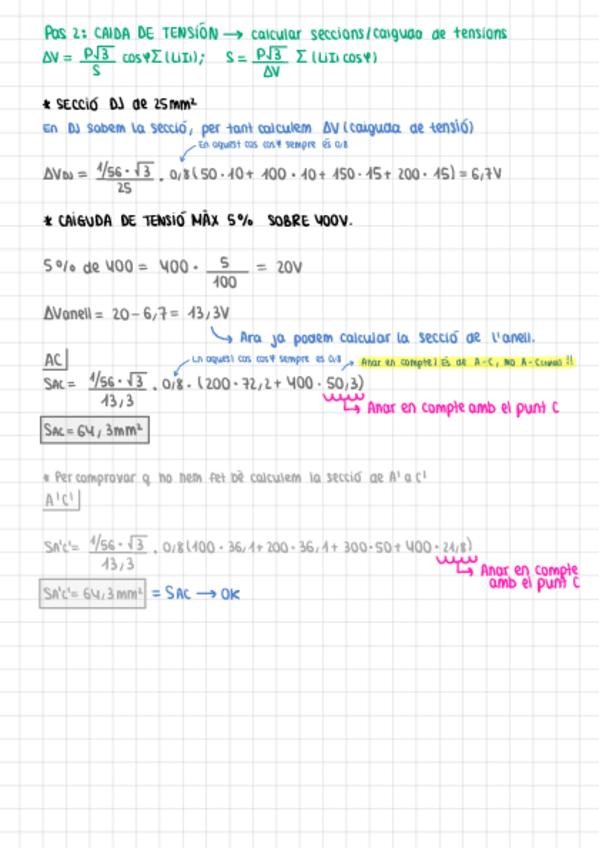 Pas 2: CAIDA DE TENSIÓN → calcular seccions/caiguda de tensions
ΔV = P√3/S cosφΣ(LiIi); S = P√3/ΔV Σ(LiIi cosφ)
* SECCIÓ DJ de 25mm²
En DJ sabem la secció, per tant calculem ΔV (caiguda de tensió)
En aquest cas cosφ sempre és 0,8
ΔVDJ = 1/56·√3/25 · 0,8(50·10+ 100·10+ 150·15+ 200·15) = 6,7V
* CAIGUDA DE TENSIÓ MÀX 5% SOBRE 400V.
5% de 400 = 400 · 5/100 = 20V
ΔVanell = 20-6,7 = 13,3V
↳ Ara ja podem calcular la secció de l'anell.
AC
En aquest cas cosφ sempre és 0,8 Anar en compte! És de A-C, NO A-C'!!
SAC = 1/56·√3/13,3 · 0,8 · (200·72,2+ 400·50,3)
↳ Anar en compte amb el punt C
SAC = 64,3mm²
* Per comprovar q ho hem fet bé calculem la secció de A' a C'
A'C'
SA'C' = 1/56·√3/13,3 · 0,8(100·36,1+ 200·36,1+ 300·50+ 400·21,8)
↳ Anar en compte
amb el punt C
SA'C' = 64,3mm² = SAC → OK